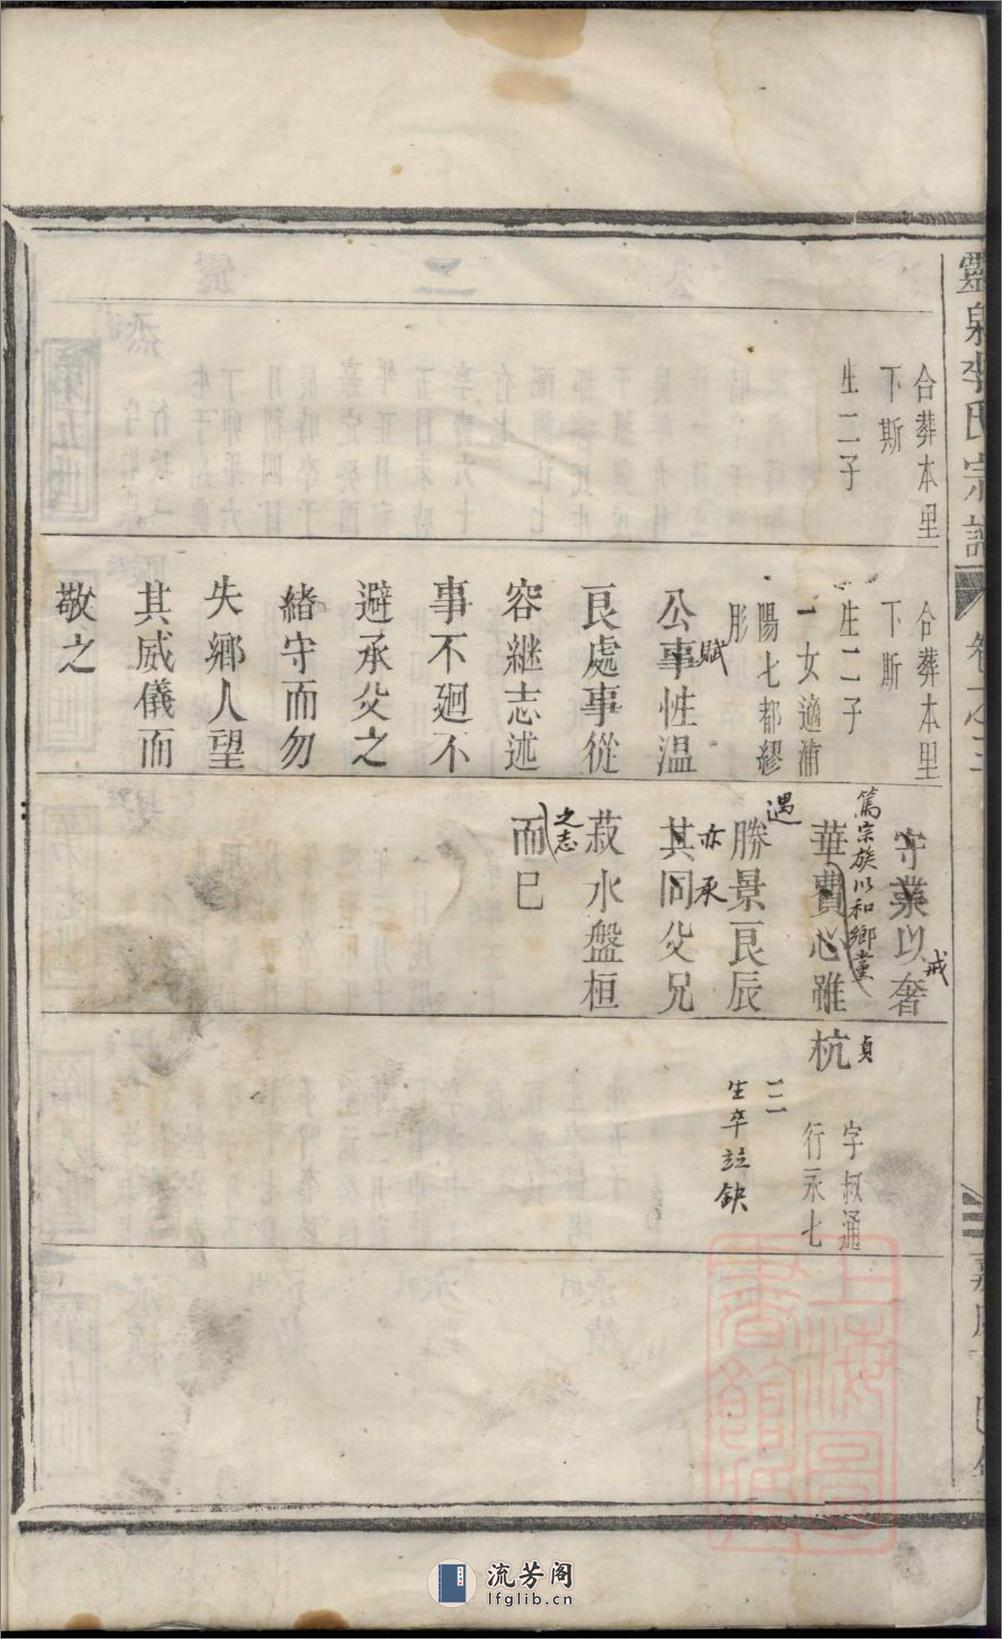 靈泉李氏宗譜
卷之三
合葬本里
下斯
生二子
合葬本里
下斯
生二子
一女適浦
陽七都繆
彤
公事性温
賦
良處事從
容継志述
事不廻不
避承父之
緒守而勿
失鄉人望
其威儀而
敬之
守業以奢
戒
篤宗族以和鄉黨
華費心雖
遇
勝景良辰
亦承
其同父兄
菽水盤桓
之志
而已
杭
貞
字叔通
行永七
生卒竝缺
上海圖書館藏
流芳阁
lfglib.cn